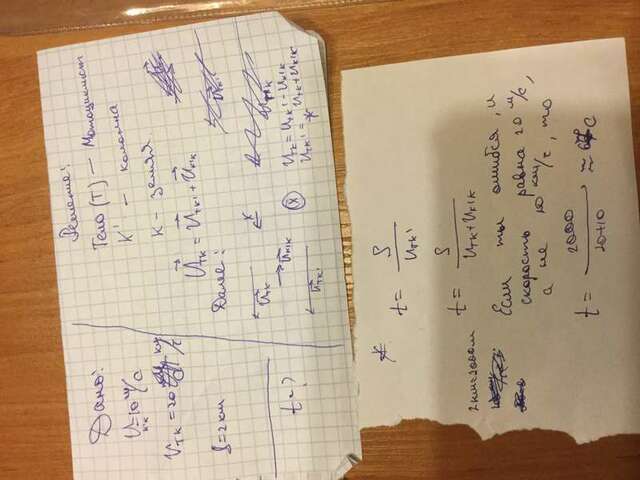 Дано:
V K'K = 10 м/с
V TK = 20 км/ч
S = 2 км
t - ?
Решение:
Тело (Т) — Мотоциклист
K' — колонна
K - земля
V⃗ TK = V⃗ TK' + V⃗ K'K
Далее:
V⃗ TK
x
V⃗ K'K
V⃗ TK'
V TK'
V TK
(x) V TK = V TK' - V K'K
V TK' = V TK + V K'K
*
* t = S / V TK'
t = S / (V TK + V K'K)
2 км = 2000 м
Если ты ошибся, и
скорость равна 20 м/с,
а не 20 км/ч, то
t = 2000 / (20+10) ≈ 67 с